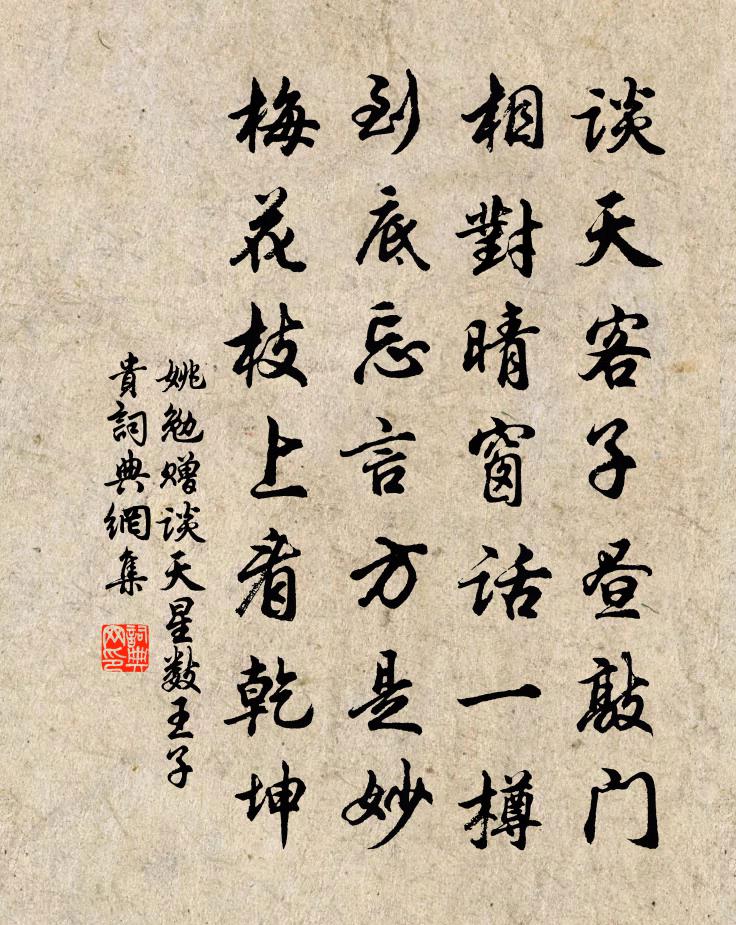 谈天客子昼敲门
相對晴窗话一樽
到底忘言方是妙
梅花枝上看乾坤
姚勉赠谈天星数王子
貴詞典網集
詞典网印